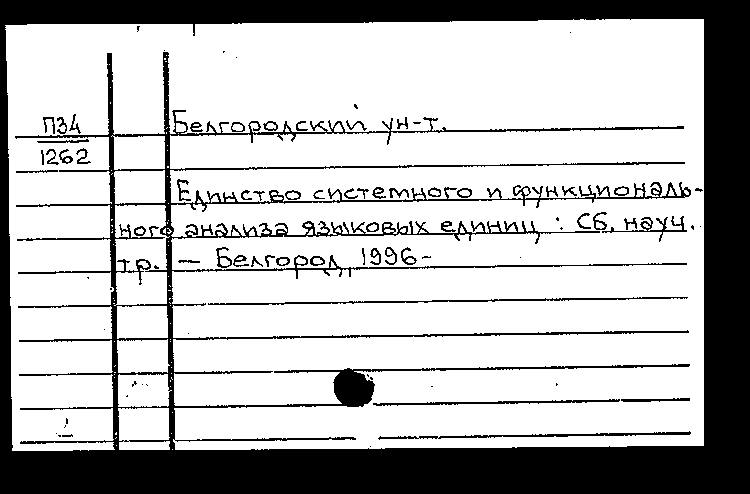 П34
1262
Белгородский ун-т.
Единство системного и функциональ-
ного анализа языковых единиц : Сб. науч.
тр. — Белгород, 1996-